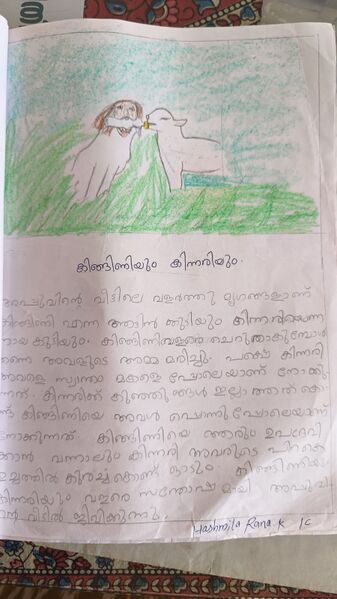 കിങ്ങിണിയും കിന്നരിയും.
അപ്പുവിന്റെ വീട്ടിലെ വളർത്തു മൃഗങ്ങളാണ്
കിങ്ങിണി എന്ന ആടിൻ കുട്ടിയും കിന്നരിയെന്ന
നായ കുട്ടിയും. കിങ്ങിണിവളരെ ചെറുതാകുമ്പോൾ
തന്നെ അവളുടെ അമ്മ മരിച്ചു. പക്ഷെ കിന്നരി
അവളെ സ്വന്തം മകളെ പോലെയാണ് നോക്കു
ന്നത്. കിന്നരിക്ക് കുഞ്ഞുങ്ങൾ ഇല്ലാത്തതു കൊ
ണ്ട് കിങ്ങിണിയെ അവൾ പൊന്നു പോലെയാണ്
നോക്കുന്നത്. കിങ്ങിണിയെ ആരും ഉപദ്രവി
ക്കാൻ വന്നാലും കിന്നരി അവരുടെ പിറകെ
ഉച്ചത്തിൽ കുരച്ചു കൊണ്ട് ഓടും. കിങ്ങിണിയും
കിന്നരിയും വളരെ സന്തോഷമായി അപ്പുവി
ന്റെ വീട്ടിൽ ജീവിക്കുന്നു.
Hashmila Rana.K 1C